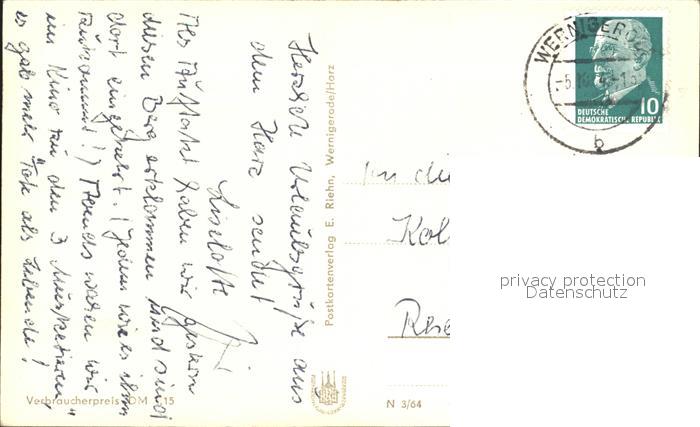 Herzliche Urlaubsgrüße aus
dem Harz sendet
Liselotte
Per Anstalt haben wir gestern
diesen Berg erklommen und sind
dort eingekehrt. (Jedem wie es ihm
zukommt!) Abends waren wir
im Kino zu den "3 Musketieren",
es gab mehr Tote als Lebende!
Postkartenverlag E. Riehn, Wernigerode/Harz
Verbraucherpreis DM 15
N 3/64
WERNIGERODE
b
10
DEUTSCHE
DEMOKRATISCHE REPUBLIK
An die
Kol
privacy protection
Datenschutz